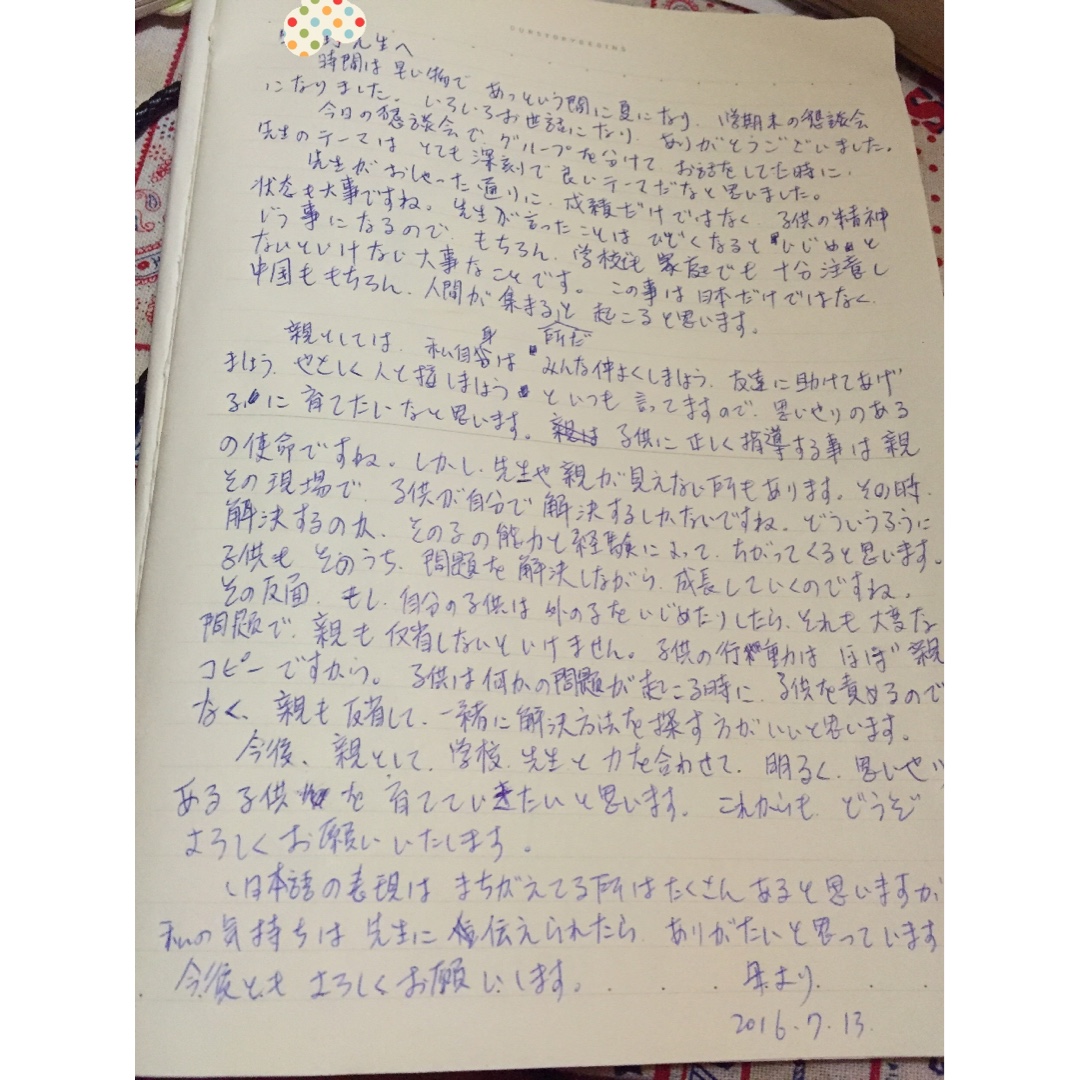 先生へ
時間は早い物で あっという間に夏になり、学期末の懇談会
になりました。いろいろお世話になり、ありがとうございました。
今日の懇談会で、グループを分けて お話をしてた時に、
先生のテーマは とても深刻で良いテーマだなと思いました。
先生がおしゃった通りに、成績だけではなく、子供の精神
状態も大事ですね。先生が言ったことは ひどくなると いじめと
いう事になるので、もちろん、学校も家庭でも 十分注意し
ないといけない大事なことです。この事は日本だけではなく、
中国ももちろん、人間が集まる所だと 起こると思います。
親としては、私自身は みんな仲よくしましょう、友達に助けてあげ
ましょう、やさしく人と接しましょう といつも言ってますので、思いやりのある
子に育てたいなと思います。子供に正しく指導する事は親
の使命ですね。しかし、先生や親が見えない所もあります。その時、
その現場で、子供が自分で解決するしかないですね。どういうふうに
解決するのか、その子の能力と経験によって、ちがってくると思います。
子供も そのうち、問題を解決しながら、成長していくのですね。
その反面、もし、自分の子供は外の子をいじめたりしたら、それも大変な
問題で、親も反省しないといけません。子供の行動は ほぼ親
コピーですから。子供は何かの問題が起こる時に、子供を責めるので
なく、親も反省して、一緒に解決方法を探す方がいいと思います。
今後、親として、学校、先生と力を合わせて、明るく、思いやり
ある子供を育てていきたいと思います。これからも、どうぞ
よろしくお願いいたします。
日本語の表現は まちがえてる所はたくさんあると思いますが
私の気持ちは 先生に伝えられたら、ありがたいと思っています
今後とも よろしくお願いします。 母より.
2016.7.13.